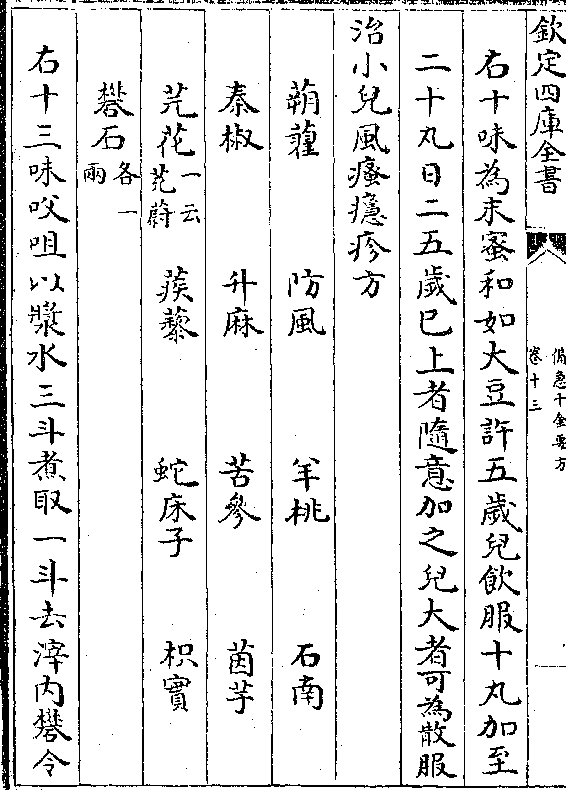 欽定四庫全書
備急千金要方
卷十三
右十味為末蜜和如大豆許五歲兒飲服十丸加至
二十丸日二五歲已上者隨意加之兒大者可為散服
治小兒風瘙癮疹方
蒴藋 防風 羊桃 石南
秦椒 升麻 苦參 茵芋
芫花一云芫蔚 蒺藜 蛇床子 枳實
礬石各一兩
右十三味㕮咀以漿水三斗煮取一斗去滓内礬令